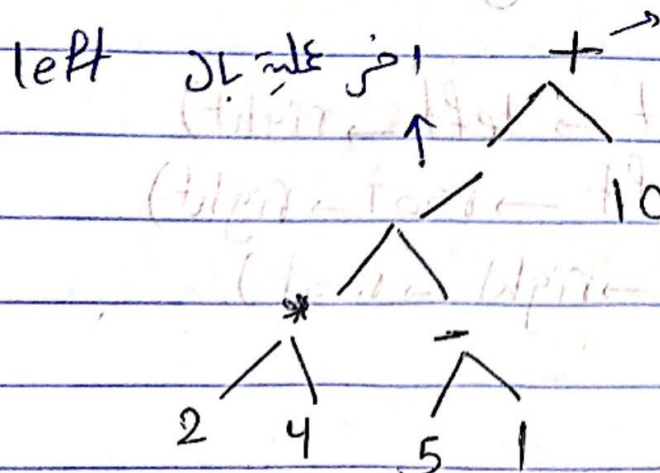 left اخر عملية بال +
/ 10
* -
2 4 5 1